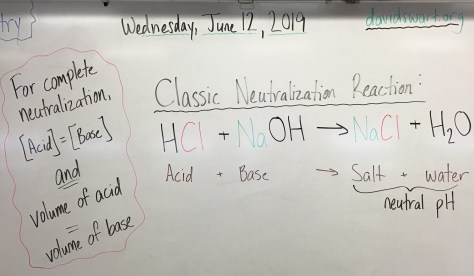 try
Wednesday, June 12, 2019
davidswart.org
For complete
neutralization,
[Acid]=[Base]
and
volume of acid
=
volume of base
Classic Neutralization Reaction:
HCl + NaOH → NaCl + H₂O
Acid + Base → Salt + water
neutral pH